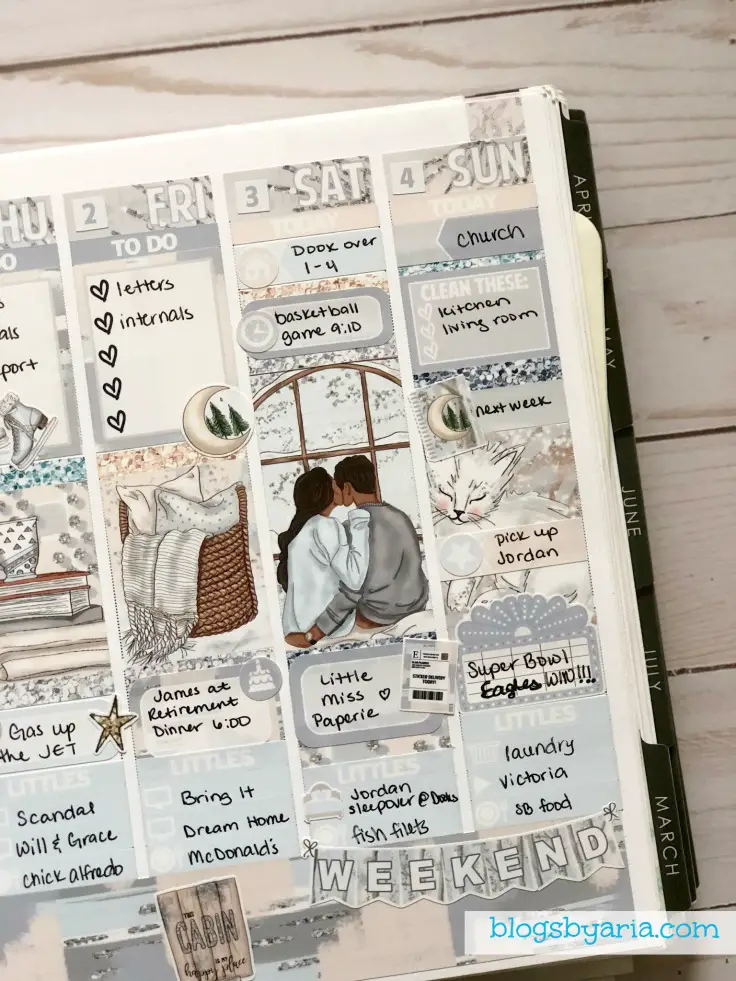 HU
O
als
port
Gas up
the JET
LITTLES
Scandal
Will & Grace
chick alfredo
2 FRI
TO DO
letters
internals
James at
Retirement
Dinner 6:00
LITTLES
Bring It
Dream Home
McDonald's
3 SAT
TODAY
Dook over
1-4
basketball
game 9:10
Little
Miss
Paperie
STICKER DELIVERY
TODAY!
LITTLES
Jordan
sleepover @ Dooks
fish filets
4 SUN
TODAY
church
CLEAN THESE:
kitchen
living room
next week
pick up
Jordan
Super Bowl
Eagles WIN!!!
LITTLES
laundry
victoria
SB food
WEEKEND
CABIN
happy place
APR
MAY
JUNE
JULY
MARCH
blogsbyaria.com